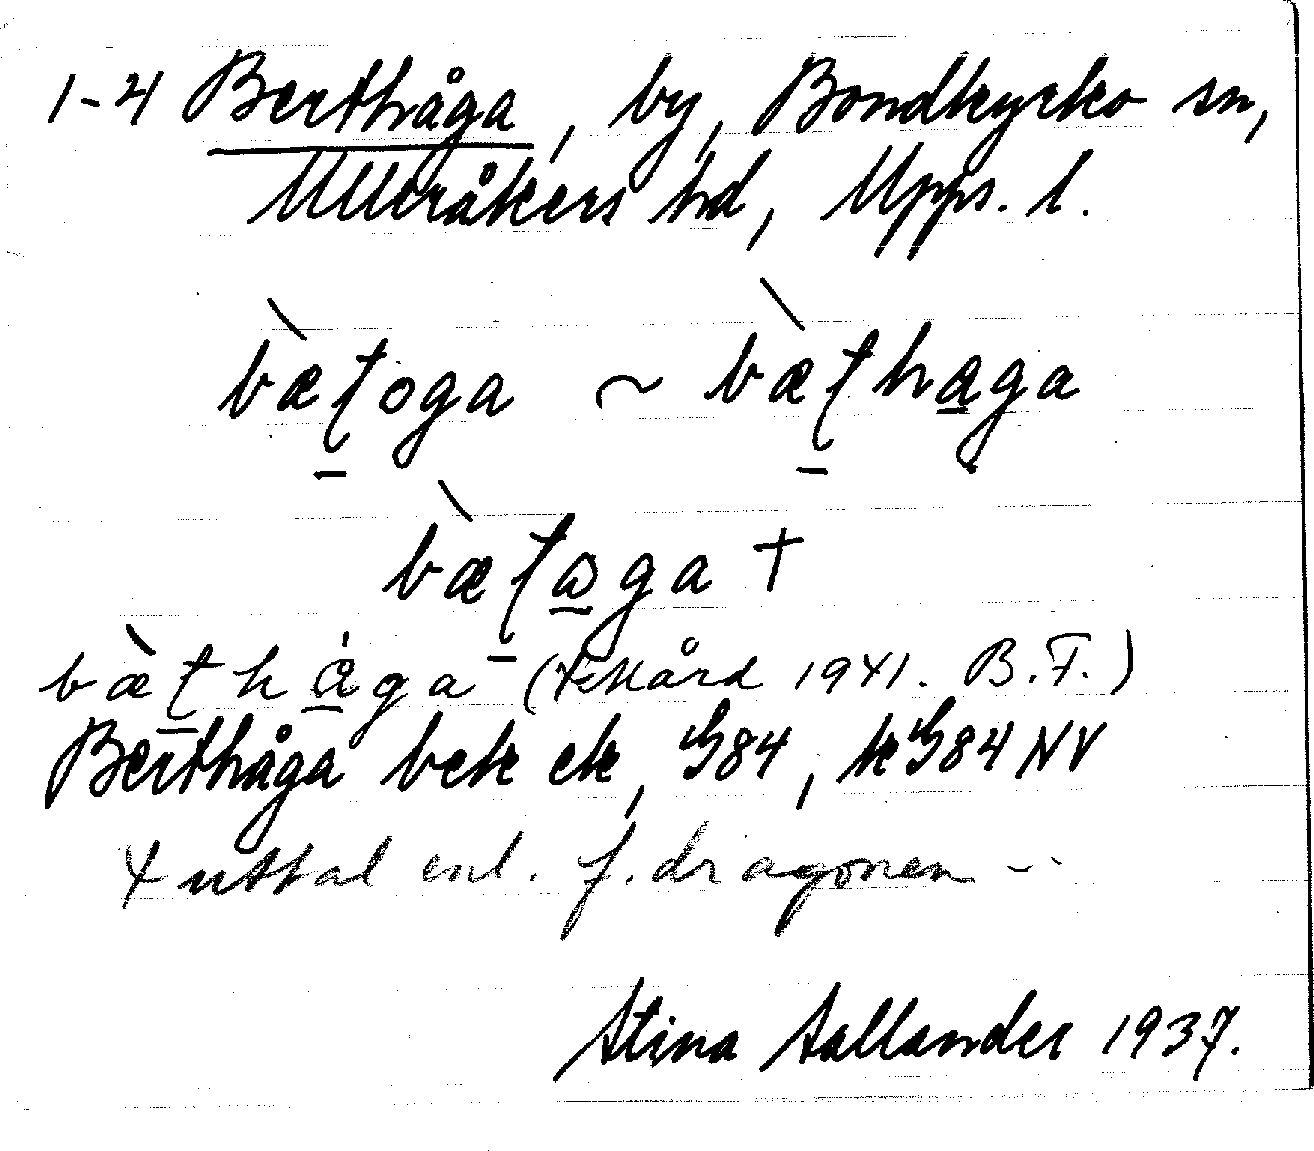 1-4 Berthåga, by, Bondkyrko sn,
Ulleråkers hd, Upps. l.
bæ̀ʈoga ~ bæ̀ʈhaga
bæ̀ʈaga +
bæ̀ʈhåga 1941. B.F.)
Berthåga bek ek, G84, kG84 NV
+ uttal enl. f. dragonen -
Stina Sallander 1937.